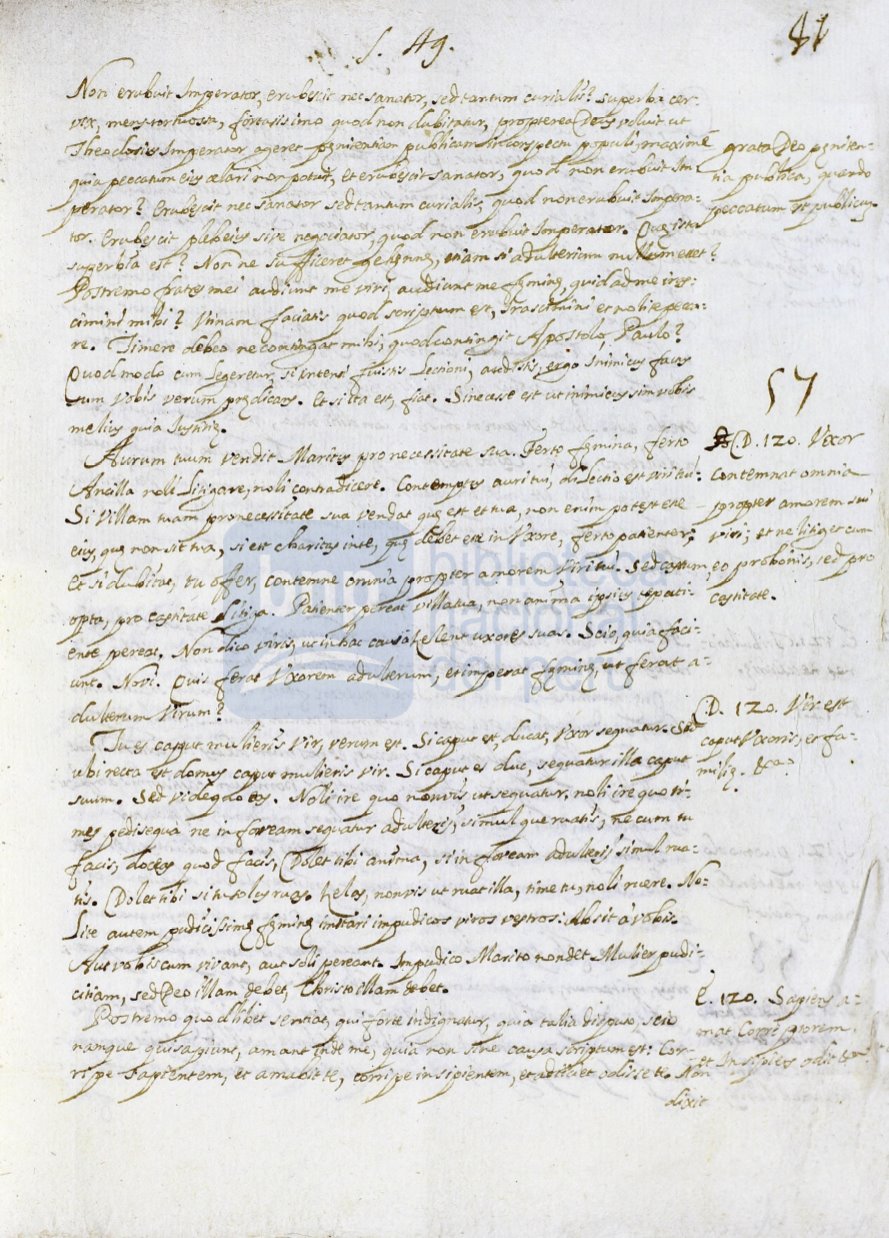 S. 49.
41
Non erubuit Imperator, erubescit nec sanator, sed tantum curialis? superba cer-
vix, mens tortuosa, fortasissimo quod non dubitatur, propterea Deus voluit ut
Theodosius Imperator ageret pęnitentiam publicam in conspectu populi, maxime
quia peccatum eius celari non potuit, et erubescit sanator, quod non erubuit Im-
perator? Erubescit nec sanator sed tantum curialis, quod non erubuit Impera-
tor. Erubescit plebeius sive negociator, quod non erubuit Imperator. Quę ista
superbia est? Non ne sufficeret gehennę, etiam si adulterium nullum esset?
Postremo frates mei audiunt me viri, audiunt me fęminę, quid ad me iras-
cimini mihi? Vtinam faciatis quod scriptum est, Irascimini et nolite pecca-
re. Timere debeo ne contingat mihi, quod contingit Apostolo Paulo?
Quod modo cum legeretur, si intenti fuistis Lectioni, audistis, ergo Inimicus factus
sum vobis verum prędicans. Et si ita est, fiat. Si necesse est ut inimicus sim vobis
melius quia Iustitię.
grata Deo pęniten-
tia publica, quando
peccatum est publicum
57
Aurum tuum vendit Maritus pro necessitate sua. Ferto fęmina, ferto
Ancilla noli Litigare, noli contradicere. Contemptus auri tui, dilectio est viri tui:
Si villam tuam pro necessitate sua vendat quę est et tua, non enim potest esse
eius, quę non sit tua, si est charitas in te, quę debet esse in Vxore, ferto patienter;
Et si dubitat, tu offer, contemne omnia propter amorem Viri tui. Sed castum
opta, pro castitate Litiga. Patienter pereat villa tua, non anima ipsius te pati-
ente pereat. Non dico viris, ut in hac causa zelent uxores suas. Scio, quia faci-
unt. Novi. Quis ferat Vxorem adulteram, et imperat fęminę, ut ferat a-
dulterum Virum?
C.D. 120. Vxor
contemnat omnia
propter amorem sui
viri; et ne litiget cum
eo pro bonis, sed pro
castitate.
Tu es caput mulieris Vir, verum est. Si caput est, ducat, Vxor sequatur. Sed
ubi recta est domus caput mulieris vir. Si caput es duc, sequatur illa caput
suum. Sed vide quo eas. Noli ire quo non vis ut sequatur, noli ire quo ti-
mes pedisequa ne in foveam sequatur adulterii, simul que ruatis, ne cum tu
facis, doceas quod facis, Dolet tibi anima, si in foveam adulterii simul rua-
tis. Dolet tibi si tu solus ruas. Zelas, non vis ut ruat illa, time tu, noli ruere. No-
lite autem pudicissimę fęminę imitari impudicos viros vestros: Absit à vobis.
Aut vobiscum vivant, aut soli pereant. Impudico Marito non det Mulier pudi-
citiam, sed Deo illam debet, Christo illam debet.
C.D. 120. Vir est
caput Vxoris, et fa-
milię. &a.
Postremo quod libet sentiat, qui forte indignatur, quia talia disputo, scio
namque qui sapiunt, amant inde me, quia non sine causa scriptum est: Cor-
ripe Sapientem, et amabit te, corripe insipientem, et adiciet odisse te. Non
dixit
C. 120. Sapiens a-
mat Corripiorem
et Insipiens odit &a.
biblioteca
nacional
del perú
bnp